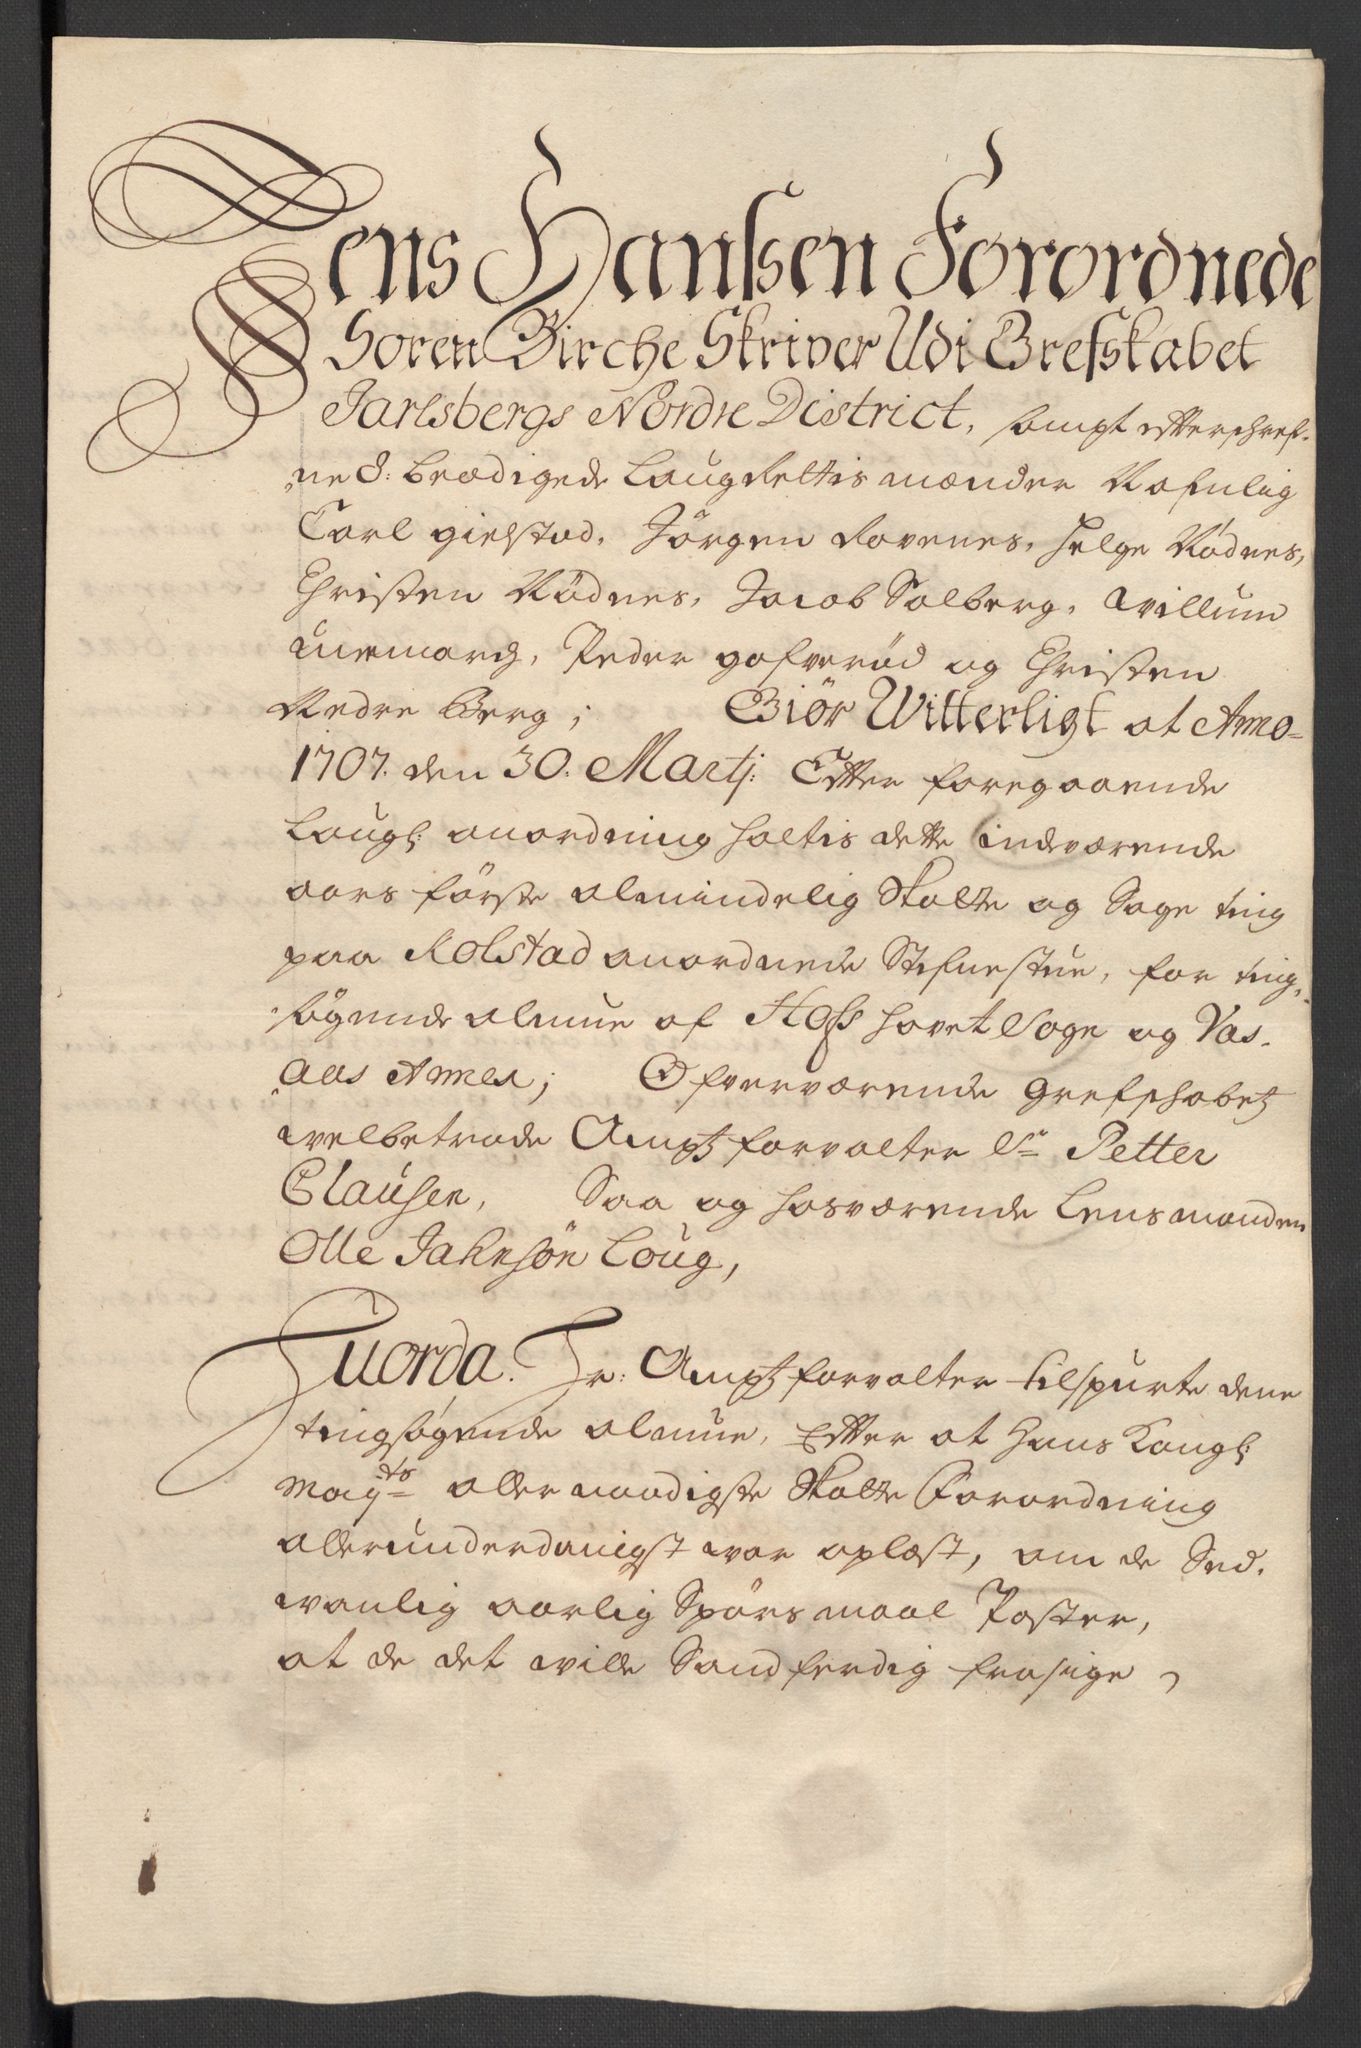 Jens Hanssen Forordnede
Soren Birche Skriver Udi Grefskabet
Jarlsbergs Nordre District, sampt efterschref-
ne 8: beædigede Laugrettismænder Nafnlig
Carl gielstad, Jörgen Rovenes, Helge Rödnes,
Christen Rödnes, Jacob Solberg, Willum
unemarch, Peder gafverød og Christen
Nedre Berg; Giör Witterligt at Anno
1707. den 30. Martj: Efter foregaaende
Laugl: anordning holtis dette indværende
aars förste almindelig Skatte og Sage ting
paa Kolstad anordnede Stefnestue, for ting-
sögende almue af Hoff hovet Sogn og Vas-
aas Annex; Ofverværende Grefschabetz
welbetrode Amptzforvalter Sr Petter
Clausen, Saa og hosværende Lensmanden
Olle Jahnsön Loug,
Huorda Hr: Amptzforvalter tilspurte denne
tingsögende almue, Efter at Hans Kongl:
Maytts allernaadigste Skatte Forordning
allerunderdanigst war oplæst, om de Sed-
wanlig aarlig Spörsmaal Poster,
at de det wille Sandferdig frasige,